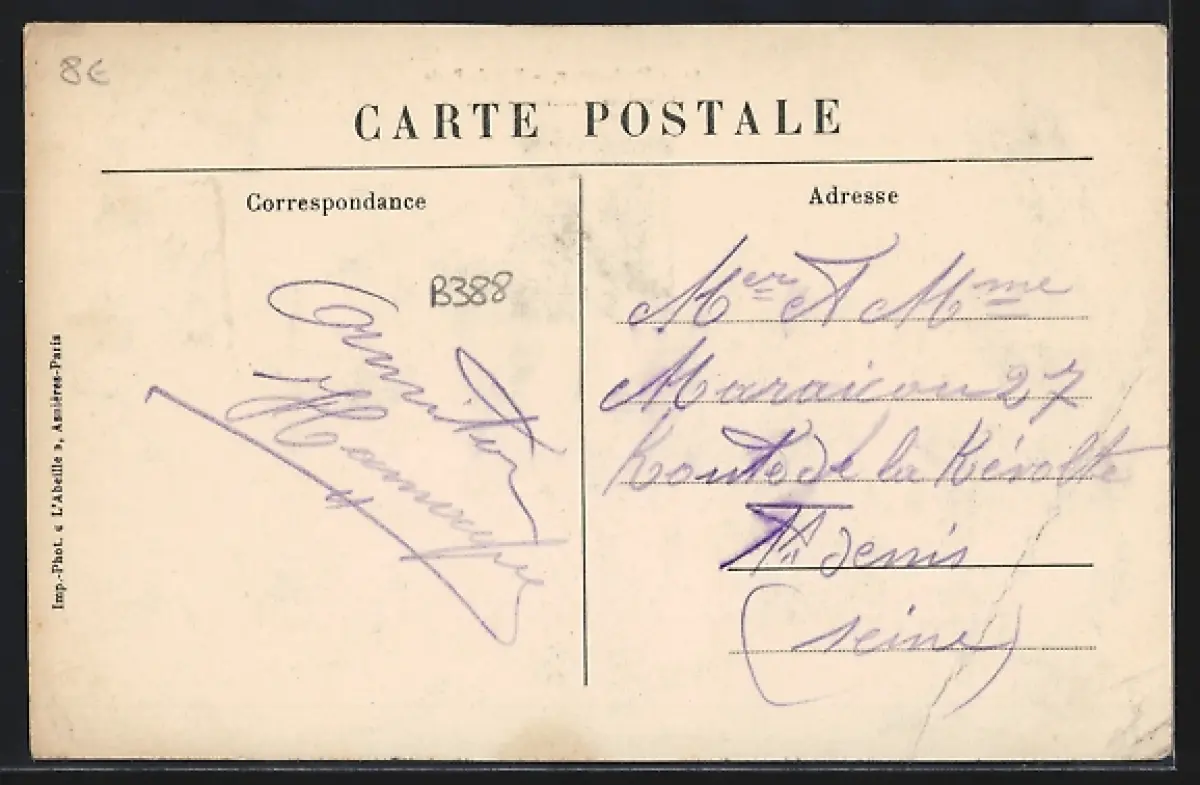 8€
CARTE POSTALE
Correspondance
Adresse
B388
Mer et Mme
27
Route de la Révolte
St denis
(seine)
Imp.-Phot. « L'Abeille », Asnières-Paris